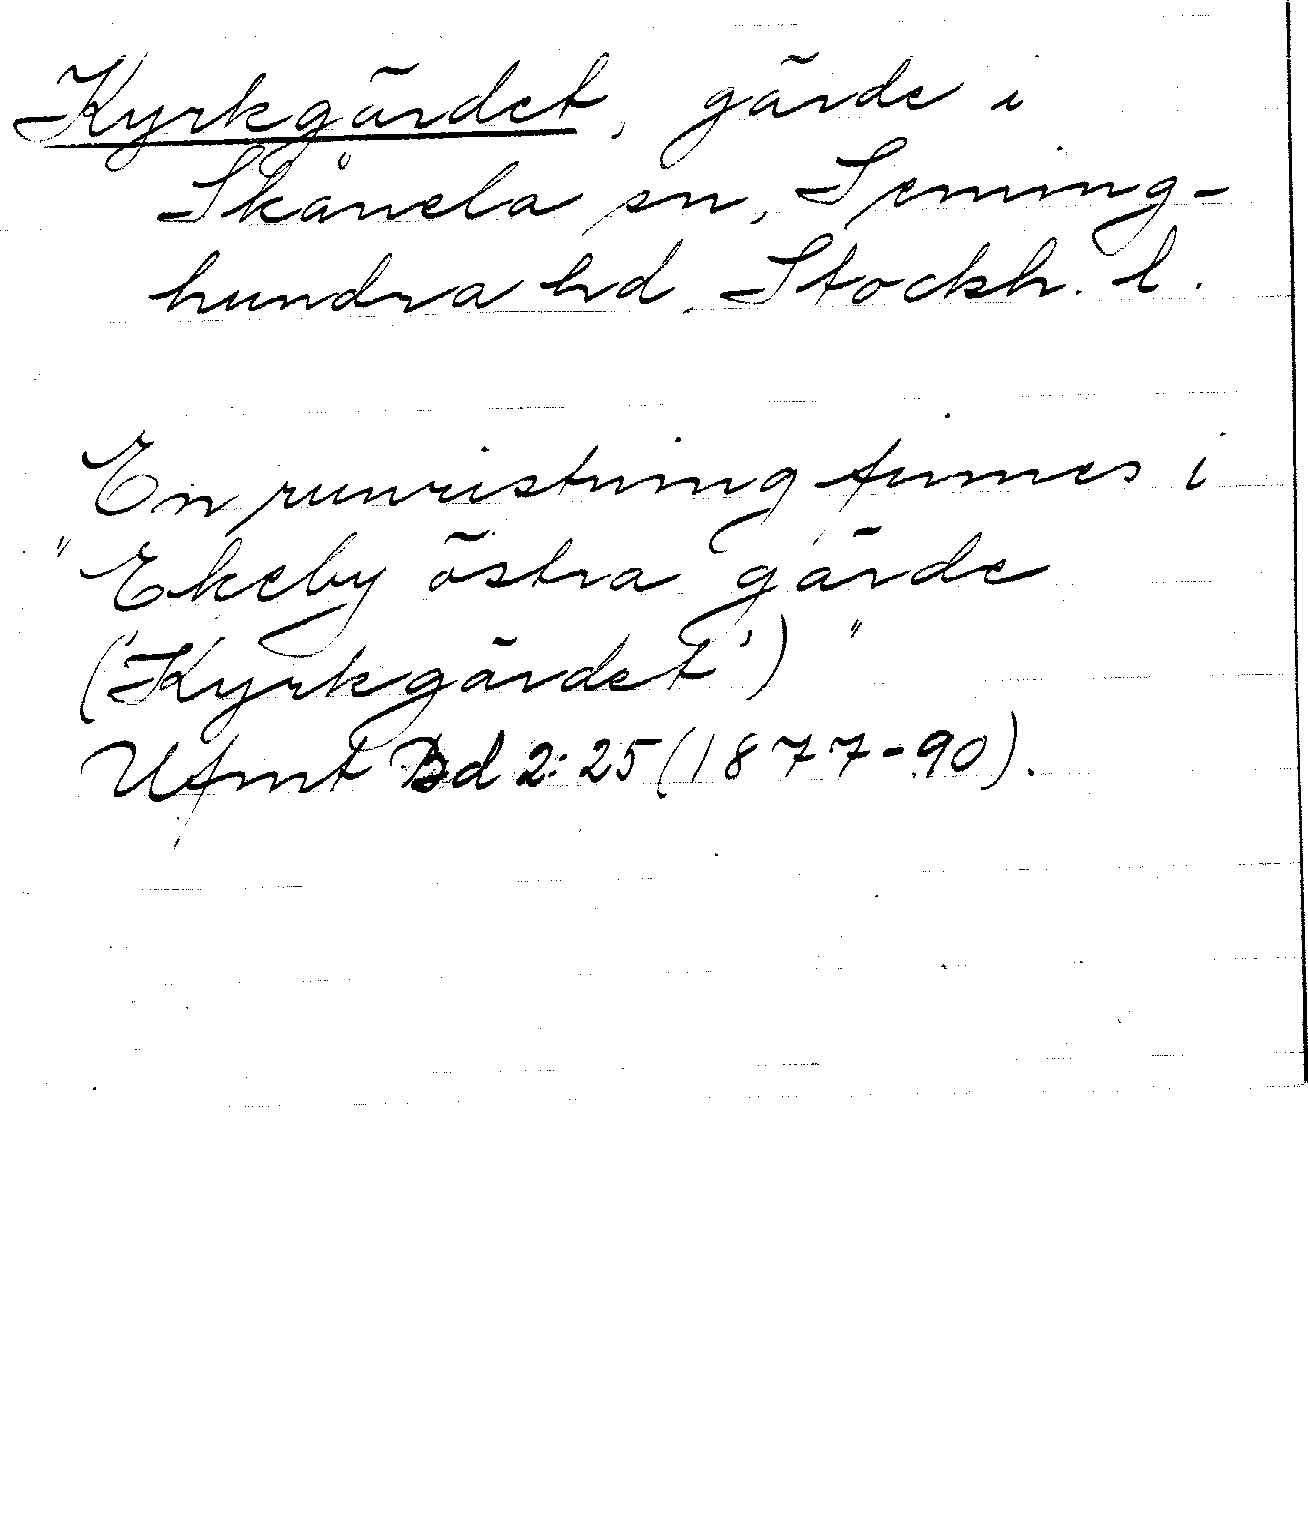 Kyrkgärdet, gärde i
Skånela sn, Seming-
hundra hd, Stockh. l.
En runristning finnes i
"Ekeby östra gärde
('Kyrkgärdet')"
Ufmt Bd 2:25 (1877-90).